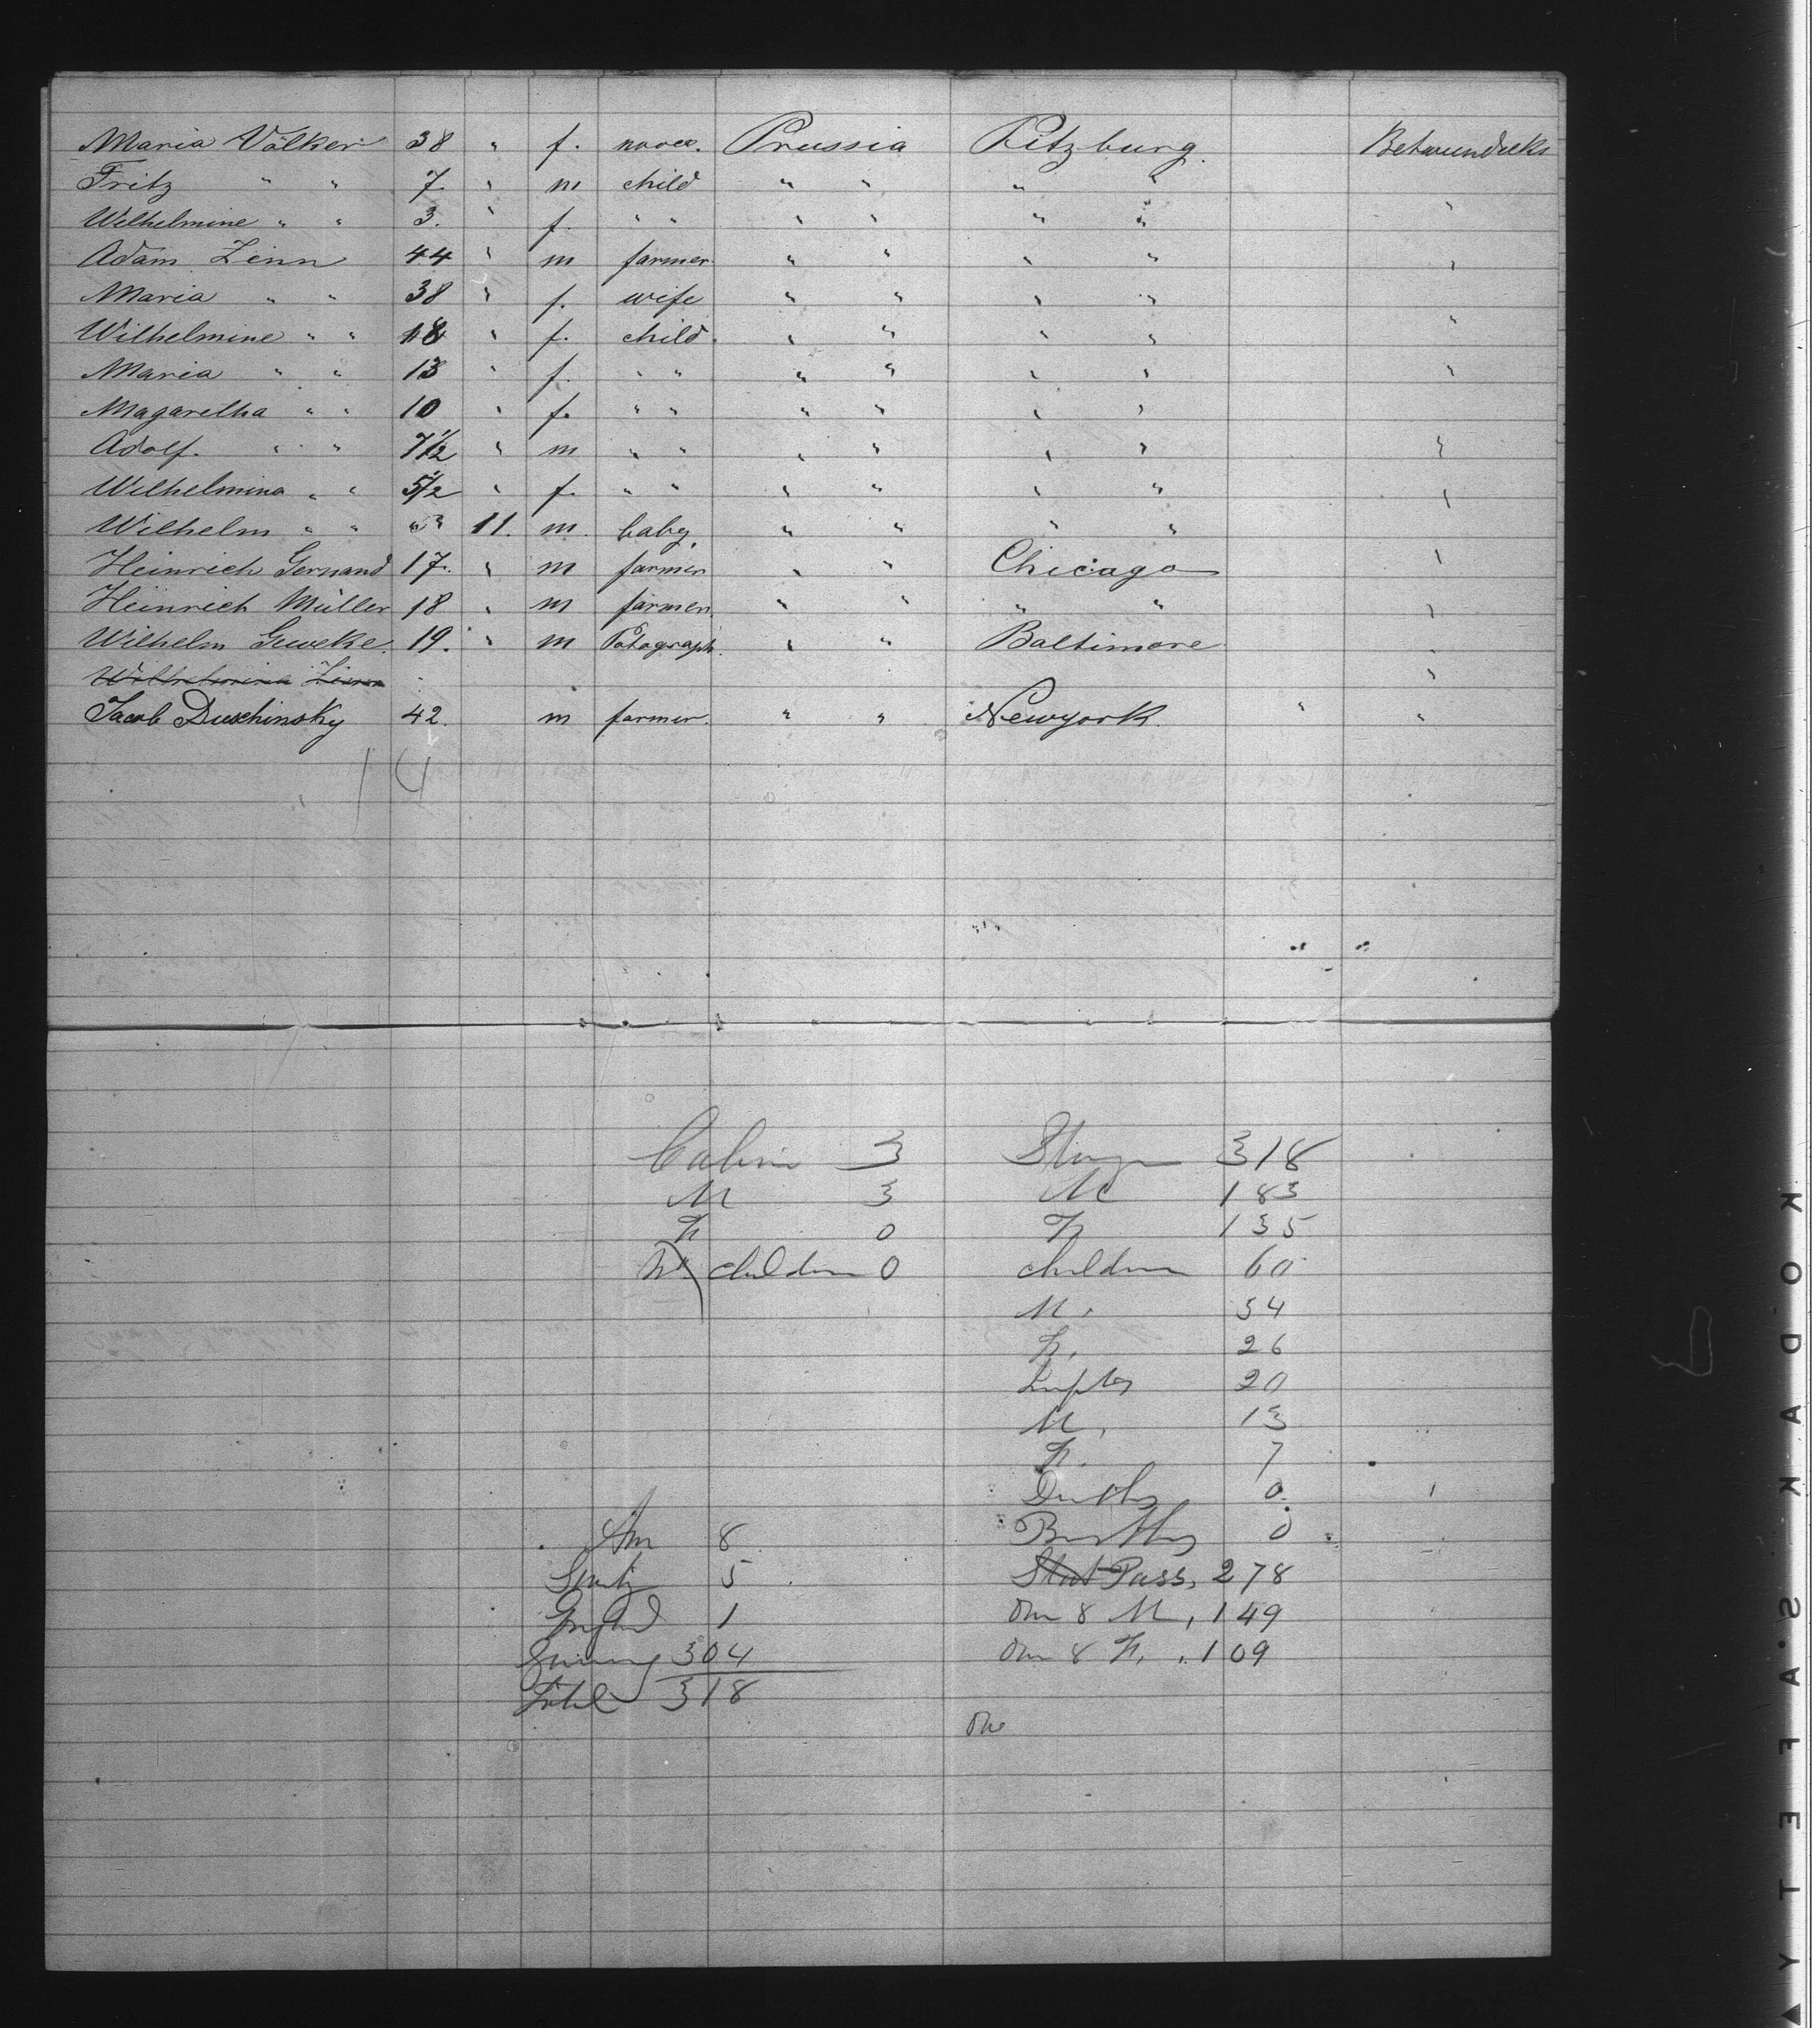 Maria Völker 38 " f. none. Prussia Pitzburg. Betweendeks
Fritz " " 7. " m child " " " "
Wilhelmine " " 3. " f. " " " " " " "
Adam Zinn 44 " m farmer. " " " " "
Maria " " 38 " f. wife " " " "
Wilhelmine " " 18 " f. child. " " " " "
Maria " " 13 " f. " " " " " " "
Magaretha " " 10 " f. " " " " " "
Adolf. " " 7 1/2 " m " " " " " " "
Wilhelmina " " 5 1/2 " f. " " " " " " "
Wilhelm " " 11. m. baby, " " " "
Heinrich Gernand 17. " m farmer " " Chicago "
Heinrich Müller 18 " m farmer. " " " " "
Wilhelm Geweke. 19. " m Potograph. " " Baltimore "
Zinn "
Jacob Duschinsky 42. m farmer. " " Newyork. " "
14
Cabin 3 318
M 3 M 183
F 0 F 135
children 0 children 60
M. 34
F. 26
20
M. 13
F. 7
Deaths 0
Am 8 Births 0
5 Stat Pass. 278
England 1 Ov 8 M. 149
Germany 304 Ov 8 F. 109
Total 318
Ov
KODAK SAFETY